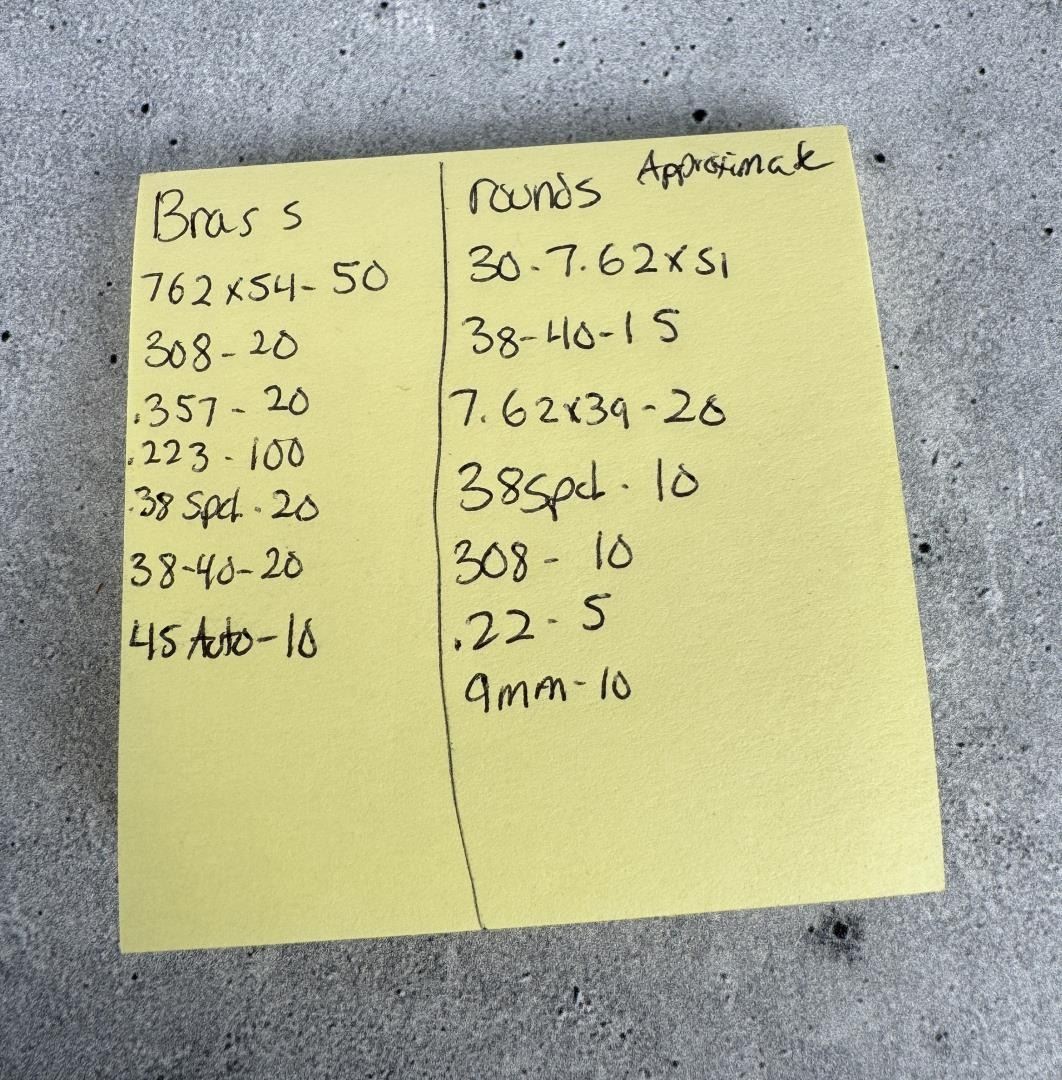 Brass
762x54-50
308-20
.357-20
.223-100
.38 Spcl-20
38-40-20
45 Auto-10
rounds Approximate
30-7.62x51
38-40-15
7.62x39-20
38Spcl-10
308-10
.22-5
9mm-10